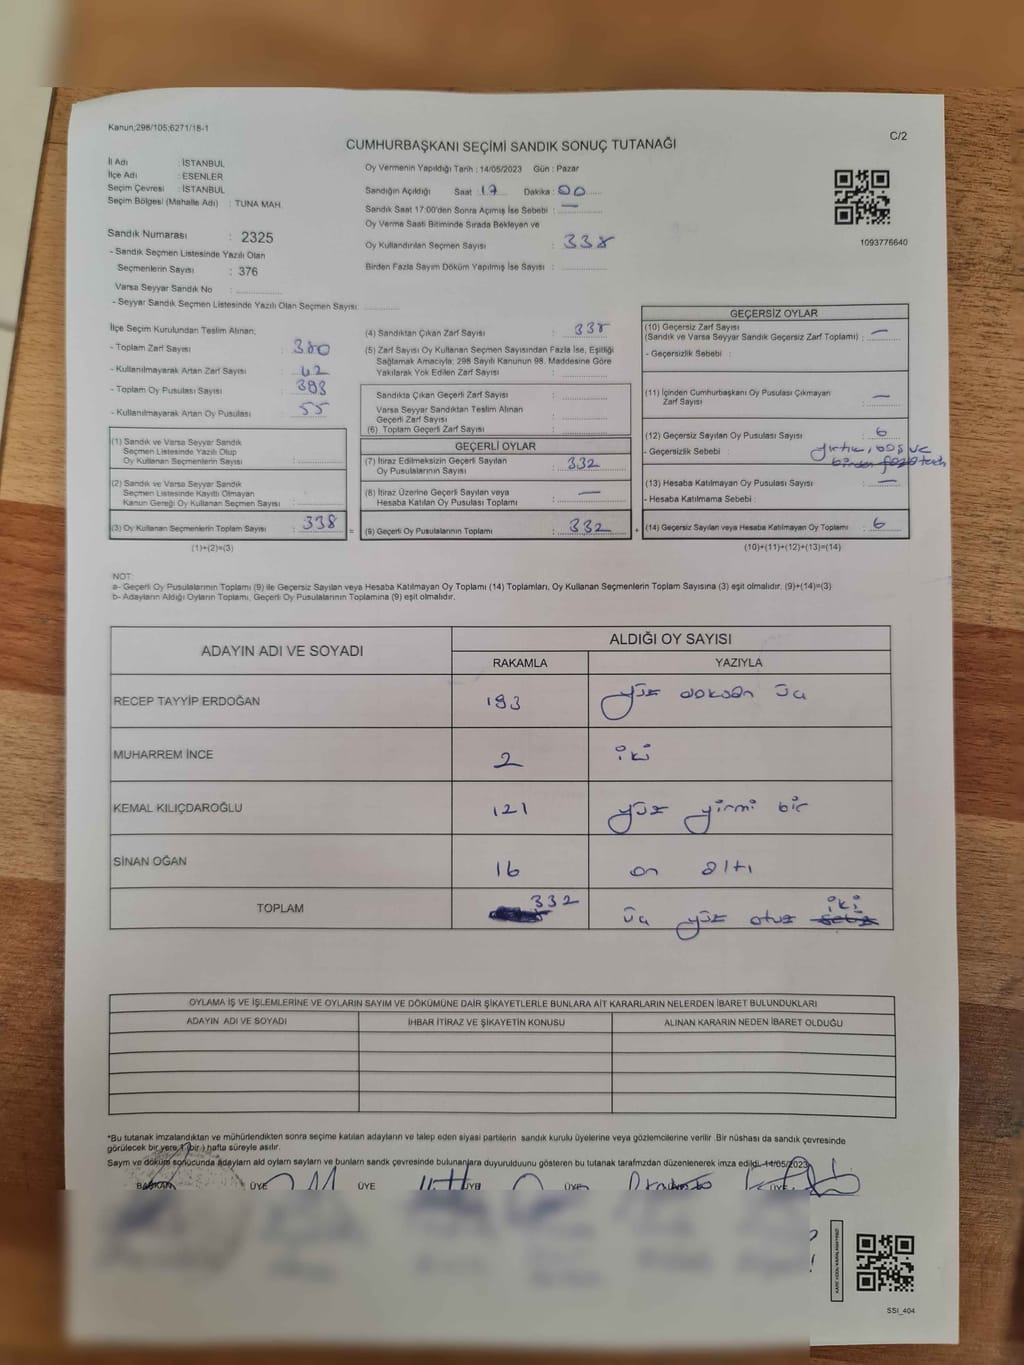 Kanun;298/105;6271/18-1
C/2
CUMHURBAŞKANI SEÇİMİ SANDIK SONUÇ TUTANAĞI
İl Adı : İSTANBUL
İlçe Adı : ESENLER
Seçim Çevresi : İSTANBUL
Seçim Bölgesi (Mahalle Adı) : TUNA MAH.
Sandık Numarası : 2325
- Sandık Seçmen Listesinde Yazılı Olan
Seçmenlerin Sayısı : 376
Varsa Seyyar Sandık No :
- Seyyar Sandık Seçmen Listesinde Yazılı Olan Seçmen Sayısı:
Oy Vermenin Yapıldığı Tarih : 14/05/2023 Gün : Pazar
Sandığın Açıldığı Saat 17 Dakika : 00
Sandık Saat 17:00'den Sonra Açımış İse Sebebi : —
Oy Verme Saati Bitiminde Sırada Bekleyen ve
Oy Kullandırılan Seçmen Sayısı : 338
Birden Fazla Sayım Döküm Yapılmış İse Sayısı :
1093776640
İlçe Seçim Kurulundan Teslim Alınan;
- Toplam Zarf Sayısı : 380
- Kullanılmayarak Artan Zarf Sayısı : 42
- Toplam Oy Pusulası Sayısı : 393
- Kullanılmayarak Artan Oy Pusulası : 55
(1) Sandık ve Varsa Seyyar Sandık
Seçmen Listesinde Yazılı Olup
Oy Kullanan Seçmenlerin Sayısı :
(2) Sandık ve Varsa Seyyar Sandık
Seçmen Listesinde Kayıtlı Olmayan
Kanun Gereği Oy Kullanan Seçmen Sayısı :
(3) Oy Kullanan Seçmenlerin Toplam Sayısı : 338
(1)+(2)=(3)
(4) Sandıktan Çıkan Zarf Sayısı : 338
(5) Zarf Sayısı Oy Kullanan Seçmen Sayısından Fazla İse, Eşitliği
Sağlamak Amacıyla; 298 Sayılı Kanunun 98. Maddesine Göre
Yakılarak Yok Edilen Zarf Sayısı :
Sandıkta Çıkan Geçerli Zarf Sayısı :
Varsa Seyyar Sandıktan Teslim Alınan
Geçerli Zarf Sayısı :
(6) Toplam Geçerli Zarf Sayısı :
GEÇERLİ OYLAR
(7) İtiraz Edilmeksizin Geçerli Sayılan
Oy Pusulalarının Sayısı : 332
(8) İtiraz Üzerine Geçerli Sayılan veya
Hesaba Katılan Oy Pusulası Toplamı : —
(9) Geçerli Oy Pusulalarının Toplamı : 332
GEÇERSİZ OYLAR
(10) Geçersiz Zarf Sayısı
(Sandık ve Varsa Seyyar Sandık Geçersiz Zarf Toplamı) : —
- Geçersizlik Sebebi :
(11) İçinden Cumhurbaşkanı Oy Pusulası Çıkmayan
Zarf Sayısı : —
(12) Geçersiz Sayılan Oy Pusulası Sayısı : 6
- Geçersizlik Sebebi : yırtık, boş ve
(13) Hesaba Katılmayan Oy Pusulası Sayısı : —
- Hesaba Katılmama Sebebi :
(14) Geçersiz Sayılan veya Hesaba Katılmayan Oy Toplamı : 6
(10)+(11)+(12)+(13)=(14)
NOT:
a- Geçerli Oy Pusulalarının Toplamı (9) ile Geçersiz Sayılan veya Hesaba Katılmayan Oy Toplamı (14) Toplamları, Oy Kullanan Seçmenlerin Toplam Sayısına (3) eşit olmalıdır. (9)+(14)=(3)
b- Adayların Aldığı Oyların Toplamı, Geçerli Oy Pusulalarının Toplamına (9) eşit olmalıdır.
ADAYIN ADI VE SOYADI
ALDIĞI OY SAYISI
RAKAMLA YAZIYLA
RECEP TAYYİP ERDOĞAN 193 yüz doksan üç
MUHARREM İNCE 2 iki
KEMAL KILIÇDAROĞLU 121 yüz yirmi bir
SİNAN OĞAN 16 on altı
TOPLAM 332 üç yüz otuz iki
OYLAMA İŞ VE İŞLEMLERİNE VE OYLARIN SAYIM VE DÖKÜMÜNE DAİR ŞİKAYETLERLE BUNLARA AİT KARARLARIN NELERDEN İBARET BULUNDUKLARI
ADAYIN ADI VE SOYADI İHBAR İTİRAZ VE ŞİKAYETİN KONUSU ALINAN KARARIN NEDEN İBARET OLDUĞU
*Bu tutanak imzalandıktan ve mühürlendikten sonra seçime katılan adayların ve talep eden siyasi partilerin sandık kurulu üyelerine veya gözlemcilerine verilir .Bir nüshası da sandık çevresinde
görülecek bir yere 1 (bir ) hafta süreyle asılır.
Sayım ve döküm sonucunda adayların ald oyların sayları ve bunların sandk çevresinde bulunanlara duyurulduunu gösteren bu tutanak tarafmzdan düzenlenerek imza edildi. 14/05/2023
BAŞKAN ÜYE ÜYE ÜYE ÜYE ÜYE
SSI_404